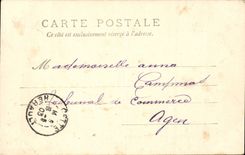 CARTE POSTALE
Ce côté est exclusivement réservé à l'adresse.
Mademoiselle Anna
Campmas
Tribunal de Commerce
Agen
CETTE
HERAULT